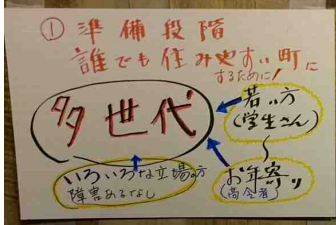 ① 準備段階
誰でも住みやすい町に
するために!
多世代
若い方
(学生さん)
お年寄り
(高令者)
いろいろな立場の方
障害あるなし